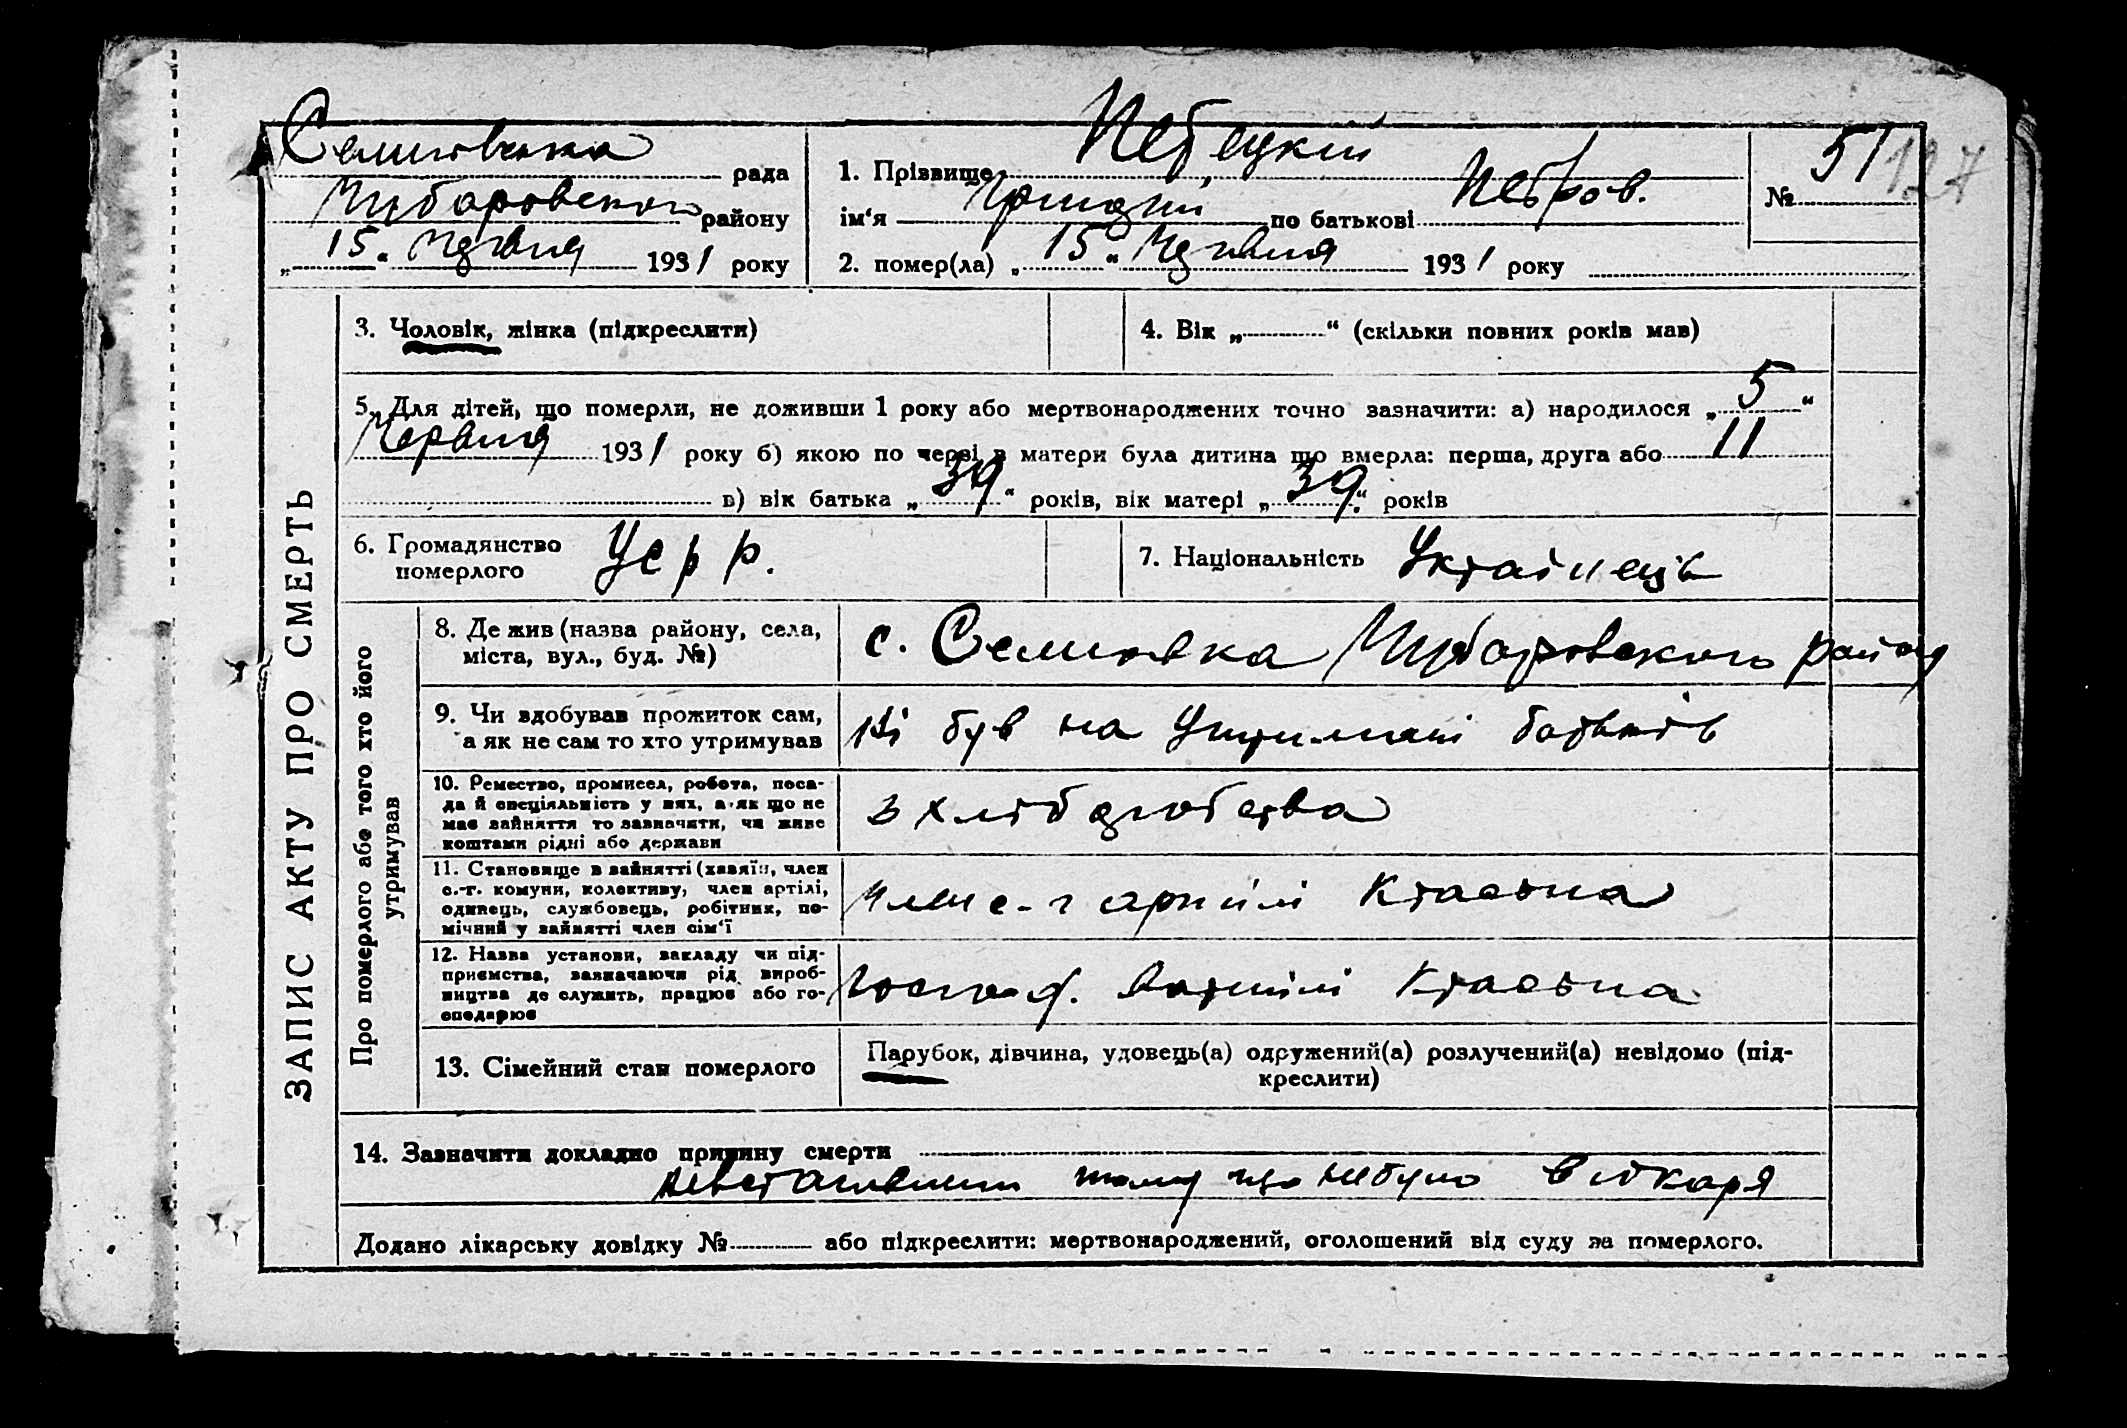 Семиовська рада
Чубаровского району
„15“ Червня 1931 року
1. Прізвище
ім‘я по батькові Петров.
2. помер(ла) „15“ Червня 1931 року
№ 51
127
ЗАПИС АКТУ ПРО СМЕРТЬ
3. Чоловік, жінка (підкреслити)
4. Вік „ “ (скільки повних років мав)
5. Для дітей, що померли, не доживши 1 року або мертвонароджених точно зазначити: а) народилося „5“
Червня 1931 року б) якою по черзі в матери була дитина що вмерла: перша, друга або 11
в) вік батька „39“ років, вік матері „39“ років
6. Громадянство
померлого
Усрр.
7. Національність Українець
Про померлого або того хто його
утримував
8. Де жив (назва району, села,
міста, вул., буд. №)
с. Семиовка Чубаровского району
9. Чи здобував прожиток сам,
а як не сам то хто утримував
Ні був на батьків
10. Ремество, промисел, робота, поса-
да й спеціяльність у них, а як що не
має зайняття то зазначити, чи живе
коштами рідні або держави
з хліборобства
11. Становище в зайнятті (хазяїн, член
с.-г. комуни, колективу, член артілі,
одинець, службовець, робітник, по-
мічний у зайнятті член сім‘ї
член с-г артілі
12. Назва установи, закладу чи під-
приємства, зазначаючи рід вироб-
ництва де служить, працює або го-
сподарює
Артілі
13. Сімейний стан померлого
Парубок, дівчина, удовець(а) одружений(а) розлучений(а) невідомо (під-
креслити)
14. Зазначити докладно причину смерти
тому що небуло
Додано лікарську довідку № або підкреслити: мертвонароджений, оголошений від суду за померлого.